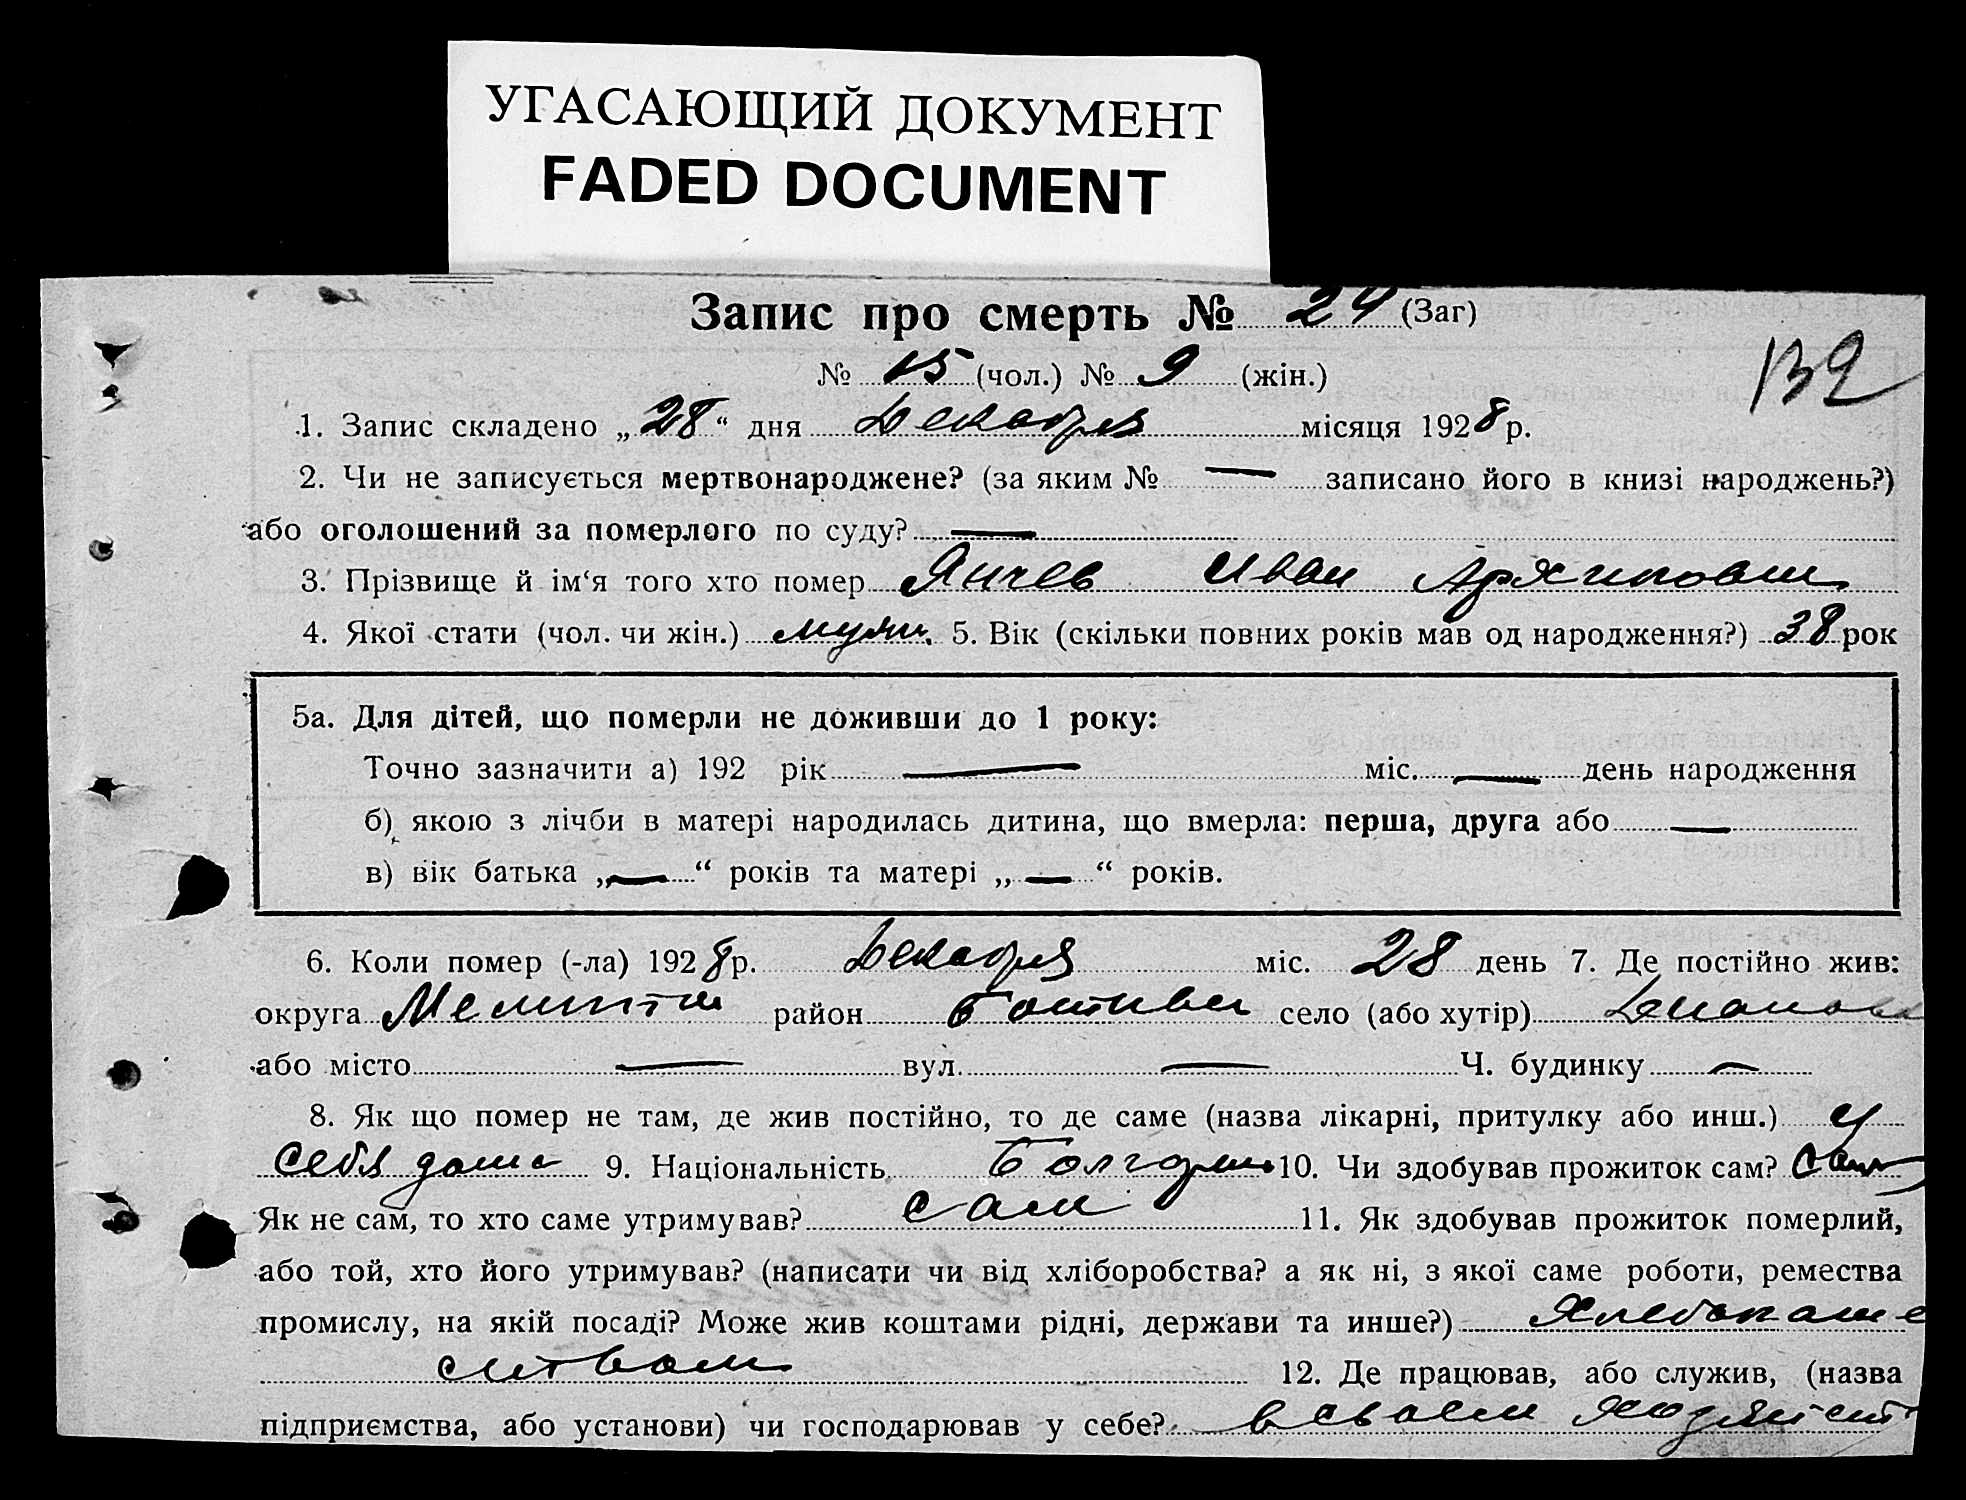 УГАСАЮЩИЙ ДОКУМЕНТ
FADED DOCUMENT
Запис про смерть № 24 (Заг)
№ 15 (чол.) № 9 (жін.)
132
1. Запис складено „28“ дня Декабря місяця 1928 р.
2. Чи не записується мертвонароджене? (за яким № — записано його в книзі народжень?)
або оголошений за померлого по суду? —
3. Прізвище й ім‘я того хто помер Янчев Иван Архипович
4. Якої стати (чол. чи жін.) мужч. 5. Вік (скільки повних років мав од народження?) 38 рок
5а. Для дітей, що померли не доживши до 1 року:
Точно зазначити а) 192 рік — міс. — день народження
б) якою з лічби в матері народилась дитина, що вмерла: перша, друга або —
в) вік батька „—“ років та матері „—“ років.
6. Коли помер (-ла) 1928 р. Декабря міс. 28 день 7. Де постійно жив:
округа район село (або хутір)
або місто — вул. — Ч. будинку —
8. Як що помер не там, де жив постійно, то де саме (назва лікарні, притулку або инш.) у
себя дома 9. Національність 10. Чи здобував прожиток сам? сам
Як не сам, то хто саме утримував? сам 11. Як здобував прожиток померлий,
або той, хто його утримував? (написати чи від хліборобства? а як ні, з якої саме роботи, ремества
промислу, на якій посаді? Може жив коштами рідні, держави та инше?) Хлебопаше
ством 12. Де працював, або служив, (назва
підприємства, або установи) чи господарював у себе? в своем